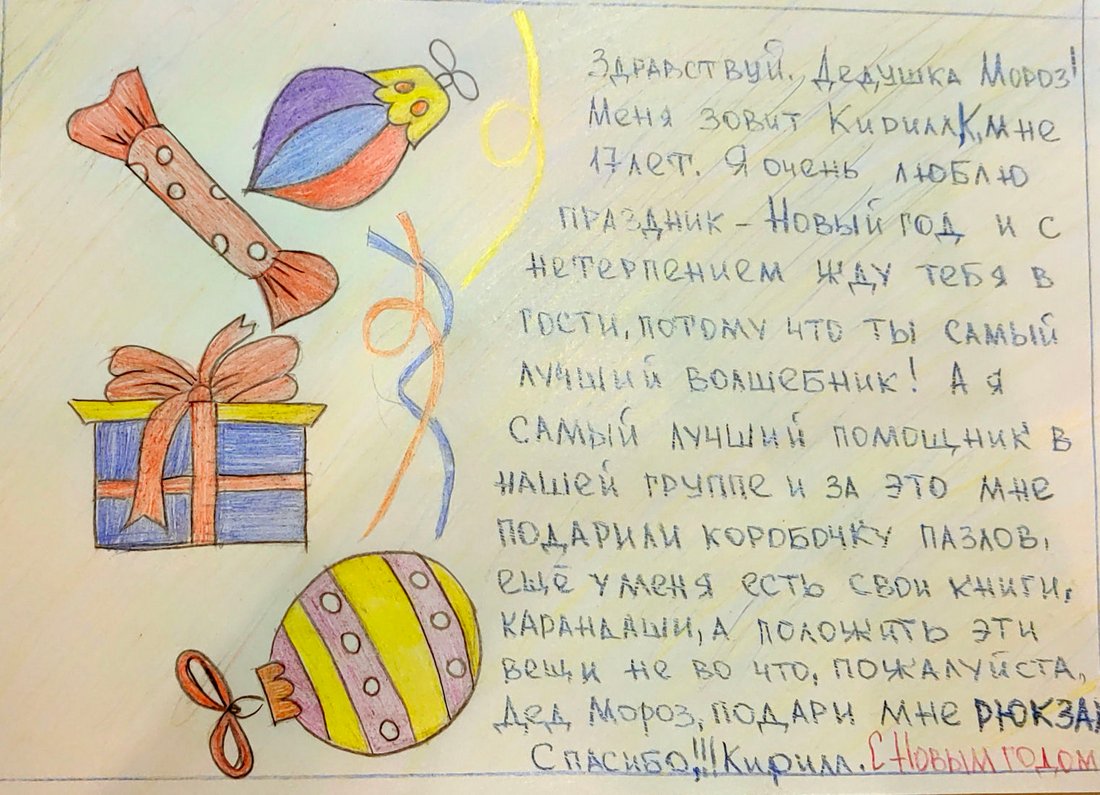 Здравствуй, Дедушка Мороз!
Меня зовит Кирилл К, мне
17 лет. Я очень люблю
праздник - Новый год и с
нетерпением жду тебя в
гости, потому что ты самый
лучший волшебник! А я
самый лучший помощник в
нашей группе и за это мне
подарили коробочку пазлов,
ещё у меня есть свои книги,
карандаши, а положить эти
вещи не во что, пожалуйста,
Дед Мороз, подари мне РЮКЗАК
Спасибо!!! Кирилл. С Новым годом